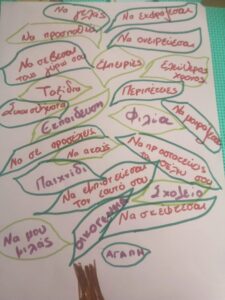 Να γελάς
Να εκφράζεσαι
Να προσπαθείς
Να ονειρεύεσαι
Να σέβεσαι
τους γύρω σου
Εμπειρίες
Ελεύθερος
χρόνος
Ταξίδια
Περιπέτειες
Συναισθήματα
Εκπαίδευση
Φιλία
Να μοιράζεσαι
Να σε προσέχεις
Να ακούς
Να προστατεύεις
το σώμα σου
Παιχνίδι
Να εμπιστεύεσαι
τον εαυτό σου
Σχολείο
Οικογένεια
Να σκέφτεσαι
Να μου
μιλάς
ΑΓΑΠΗ